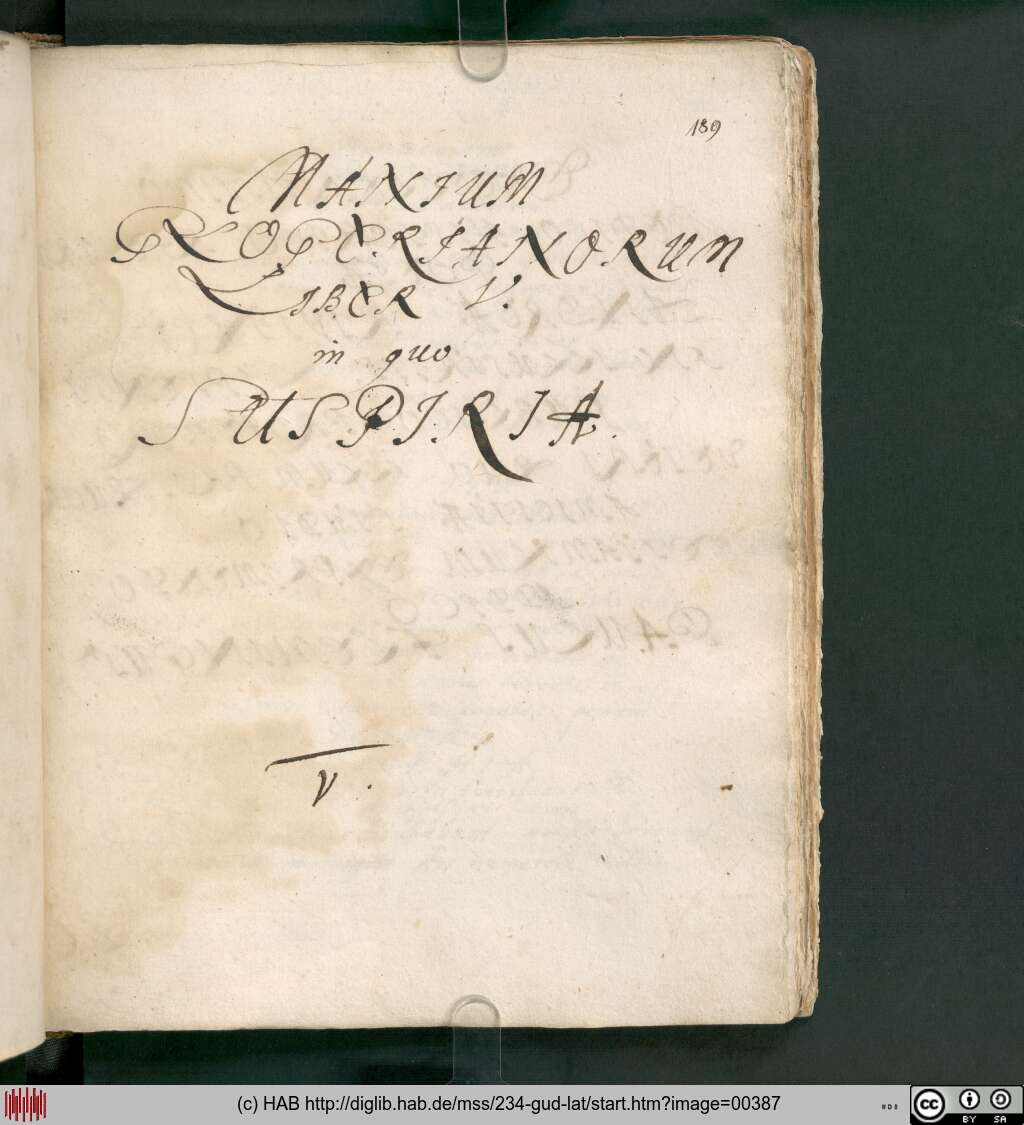 189
MANIUM
PROPERIANORUM
LIBER V.
in quo
SUSPIRIA.
V.
(c) HAB http://diglib.hab.de/mss/234-gud-lat/start.htm?image=00387
cc BY SA